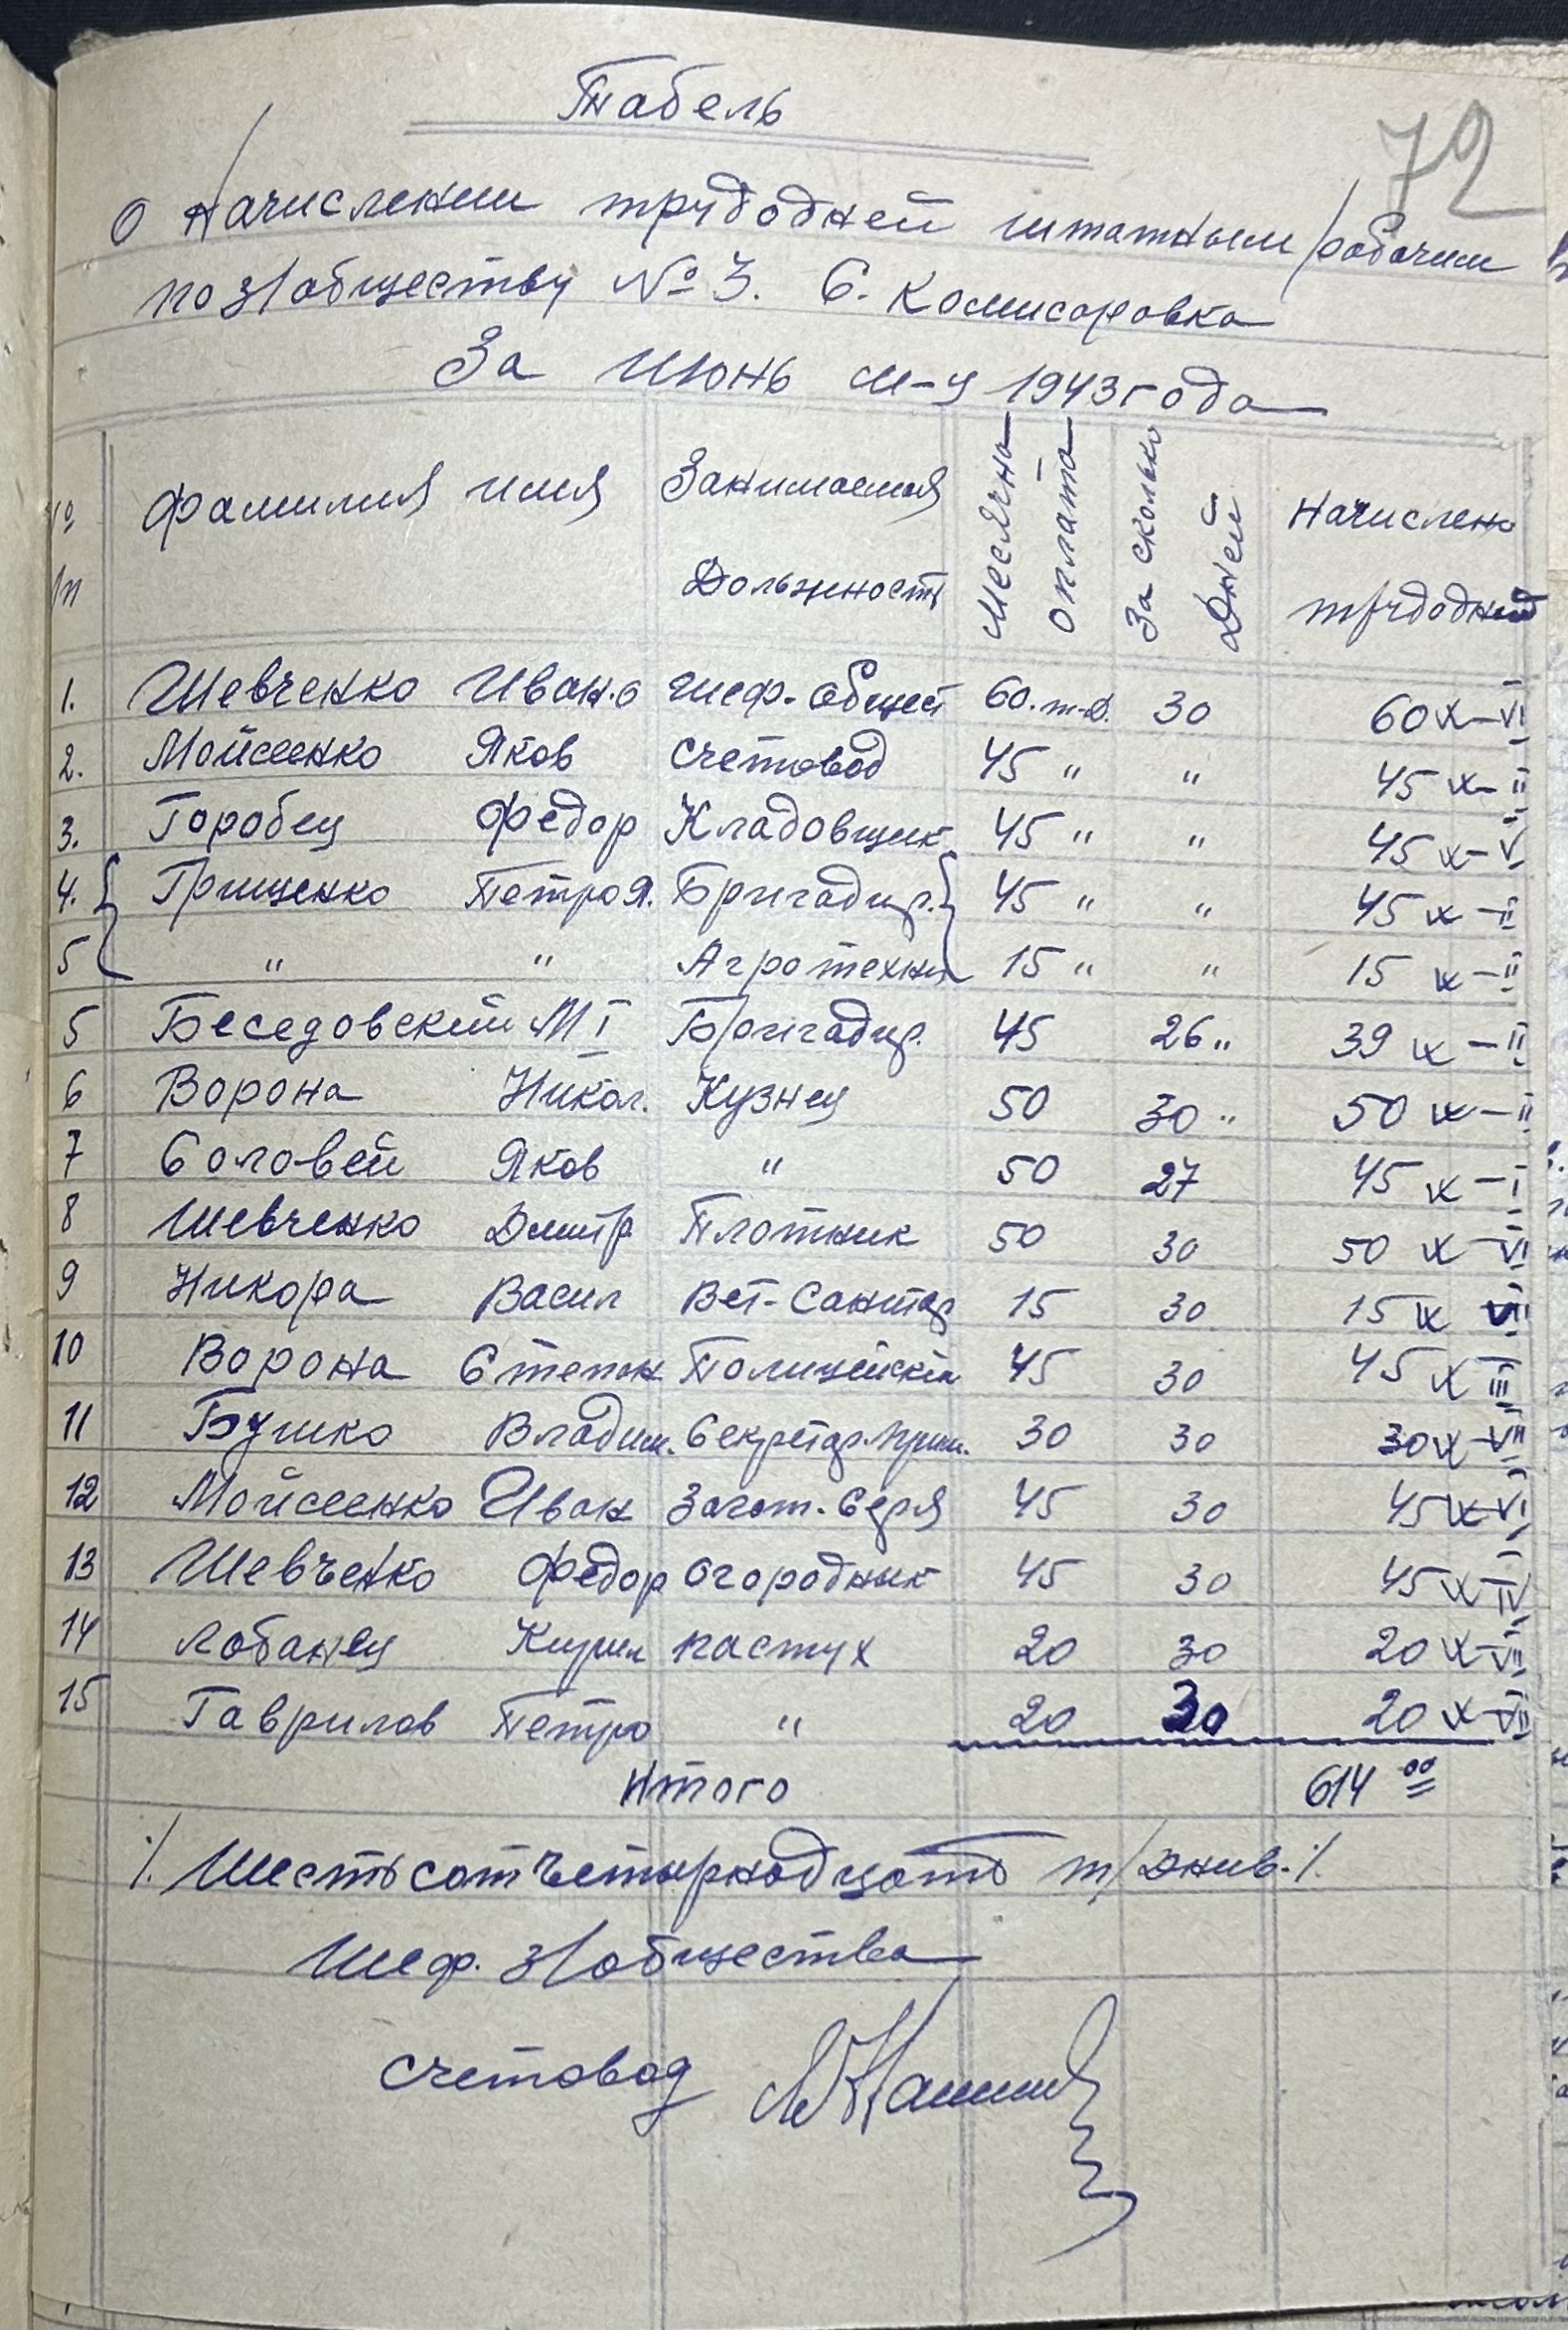 Табель
72
О Начислении трудодней штатным рабочим
по з/обществу № 3. С. Комисаровка
За Июнь м-ц 1943 года
№ п/п Фамилия имя Занимаемая Должность Месячна оплата За сколько Дней Начислено трудодней
1. Шевченко Иван. о Шеф. Общест 60. т-д. 30 60 х-VI
2. Мойсеенко Яков Счетовод 45 " " 45 х-II
3. Горобец Федор Кладовщик 45 " " 45 х-V
4. Грищенко Петро Я. Бригадир. 45 " " 45 х-II
5 " " Агротехник 15 " " 15 х-II
5 Беседовский М І Бригадир. 45 26 " 39 х-II
6 Ворона Никол. Кузнец 50 30 " 50 х-II
7 Соловей Яков " 50 27 45 х-I
8 Шевченко Дмитр Плотник 50 30 50 х-VI
9 Никора Васил Вет-Санитар 15 30 15 х VII
10 Ворона Степан Полицейский 45 30 45 х III
11 Бушко Владим. Секретар. прим. 30 30 30 х-VII
12 Мойсеенко Иван Загот. Сыря 45 30 45 х-VI
13 Шевченко Федор Огородник 45 30 45 х-IV
14 Лобанец Кирил пастух 20 30 20 х-VII
15 Гаврилов Петро " 20 30 20 х-VII
Итого 614 00
/. Шестьсотчетырнадцать т/днив. /.
Шеф. з/общества
Счетовод